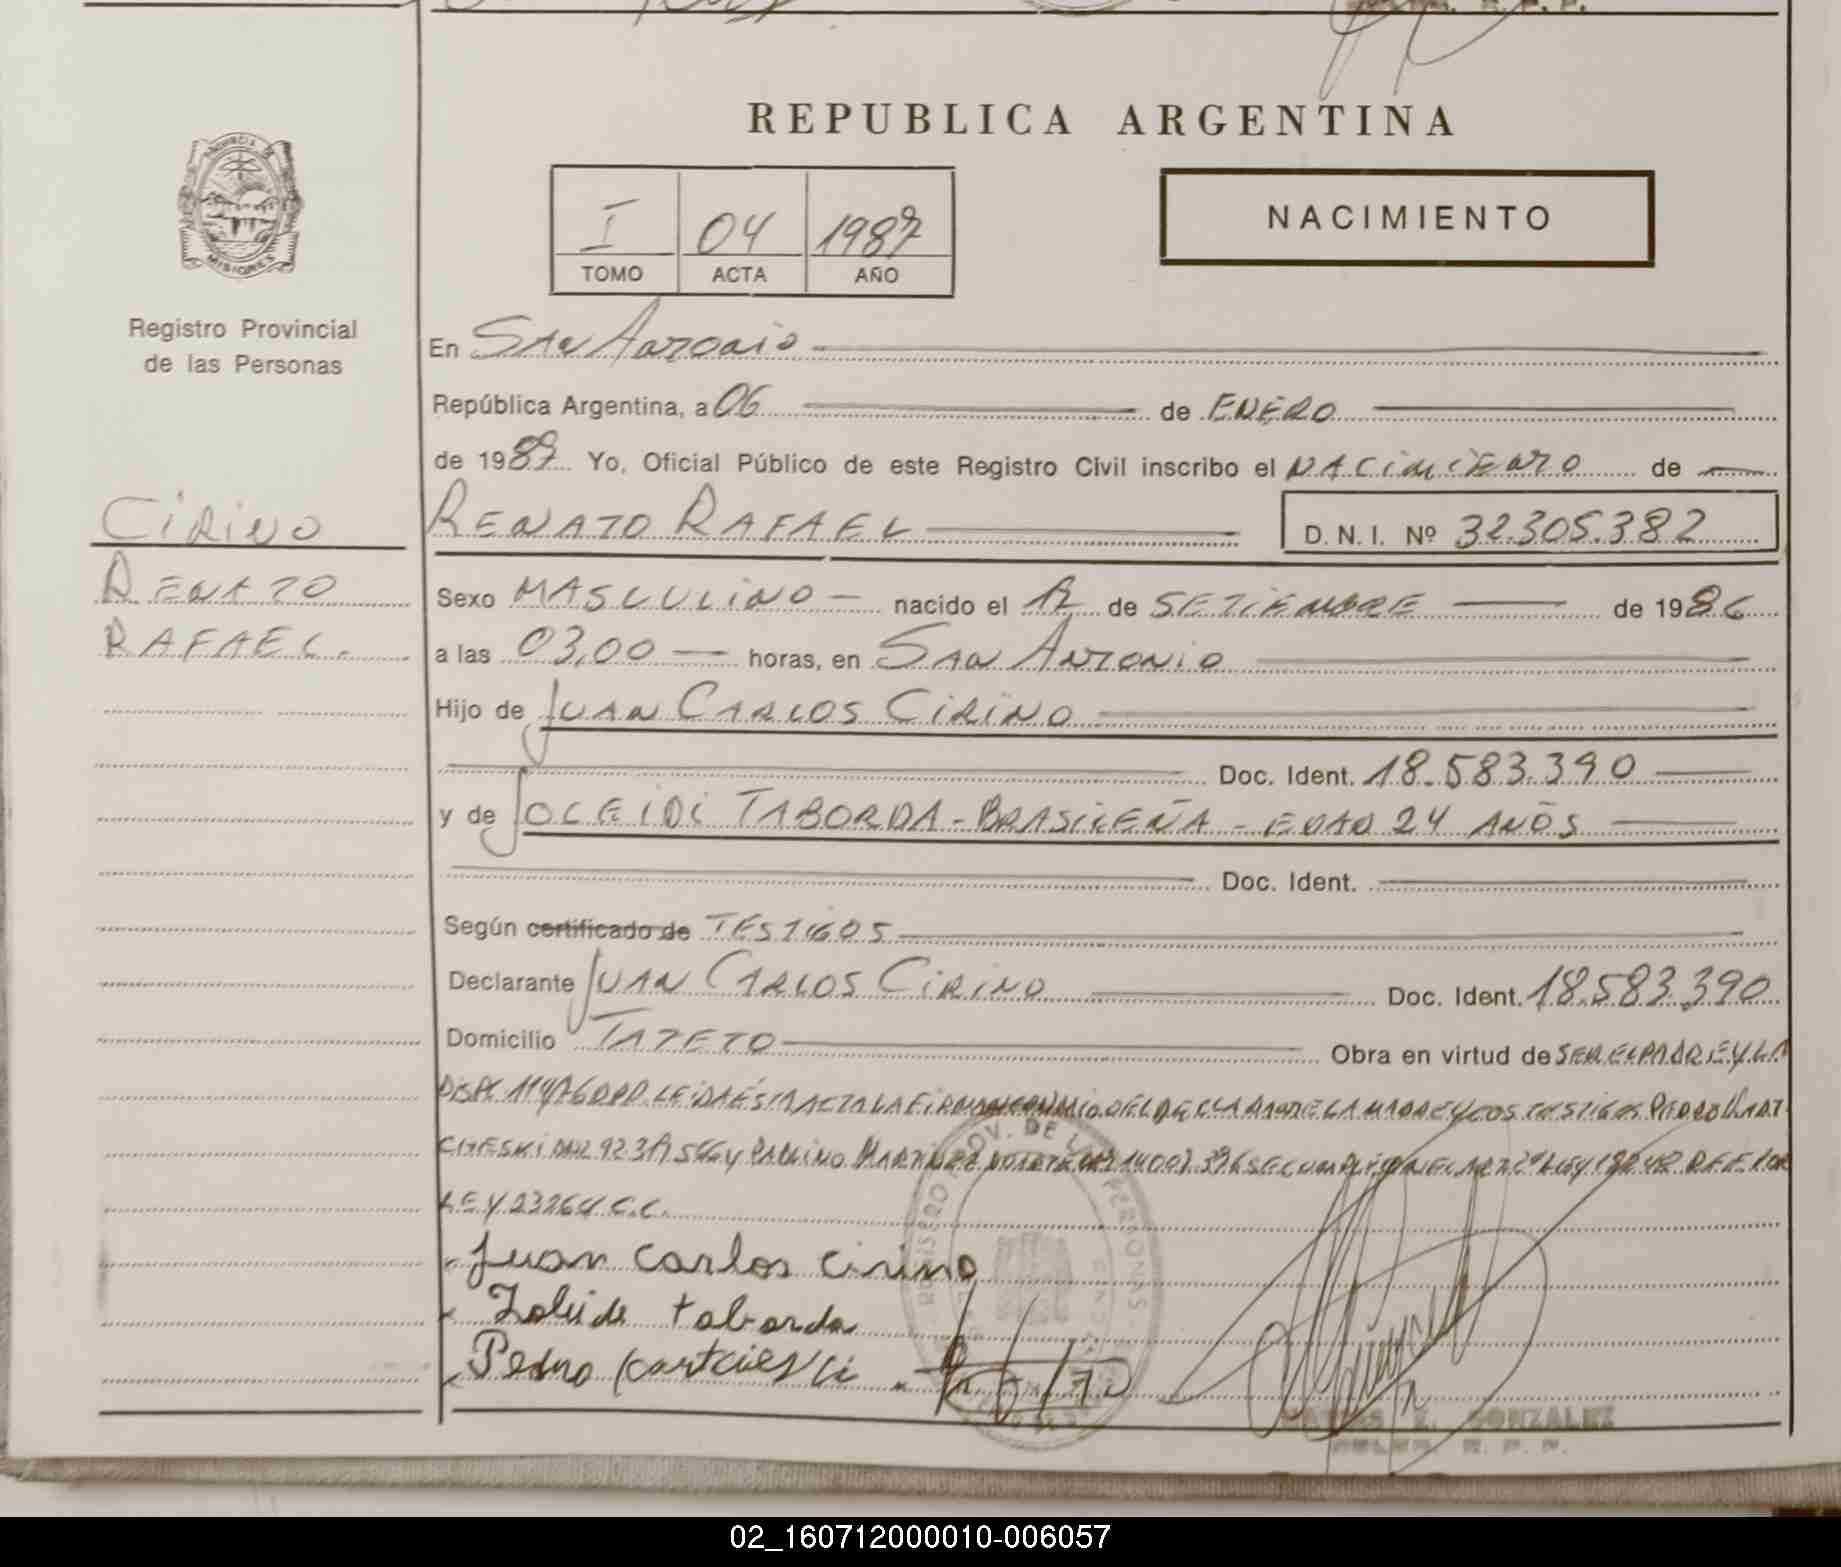 REPUBLICA ARGENTINA
PROVINCIA DE
MISIONES
Registro Provincial
de las Personas
I 04 1987
TOMO ACTA AÑO
NACIMIENTO
En San Antonio
República Argentina, a 06 de ENERO
de 1987 Yo, Oficial Público de este Registro Civil inscribo el NACIMIENTO de
CIRINO
RENATO
RAFAEL.
RENATO RAFAEL D. N. I. Nº 32.305.382
Sexo MASCULINO nacido el 12 de SETIEMBRE de 1986
a las 03,00 horas, en SAN ANTONIO
Hijo de JUAN CARLOS CIRINO
Doc. Ident. 18.583.390
y de JOCEIDI TABORDA - BRASILEÑA - EDAD 24 AÑOS
Doc. Ident.
Según certificado de TESTIGOS
Declarante JUAN CARLOS CIRINO Doc. Ident. 18.583.390
Domicilio TATETO Obra en virtud de SER EL PADRE Y LA
LEIDA ESTA ACTA LA FIRMAN CONMIGO EL DECLARANTE LA MADRE Y LOS TESTIGOS PEDRO
Y PAULINO MARTINEZ SE CUMPLIO EN EL ART 2º LEY REF POR
LEY 23264 C.C.
Juan Carlos Cirino
taborda
Pedro
REGISTRO PROV. DE LAS PERSONAS
GONZALEZ